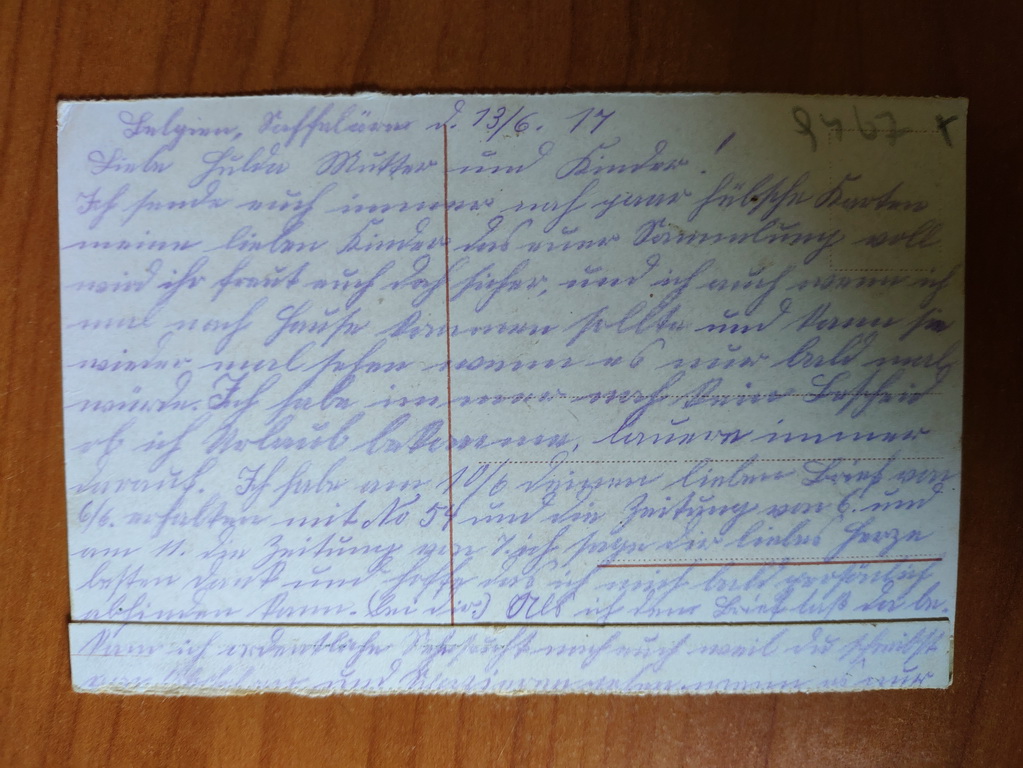 Belgien, Saffeläre d. 13/6. 17
Liebe Hulda Mutter und Kinder!
Ich sende euch immer noch paar hübsche Karten
meine lieben Kinder das euer Sammlung voll
wird ihr freut euch doch sicher, und ich auch wenn ich
mal nach Hause kommen sollte und kann sie
wieder mal sehen wenn es nur bald mal
würde. Ich habe immer noch kein Bescheid
ob ich Urlaub bekomme, lauere immer
darauf. Ich habe am 10/6 deinen lieben Brief von
6/6. erhalten mit No 54 und die Zeitung von 6. und
am 11. die Zeitung von 7. ich sage dir liebes Herze
besten Dank und hoffe das ich mich bald persönlich
abfinden kann. (bei dir.) Als ich dein Brief laß da be-
kam ich ordentliche Sehnsucht nach euch weil du schreibst
und wenn es nur